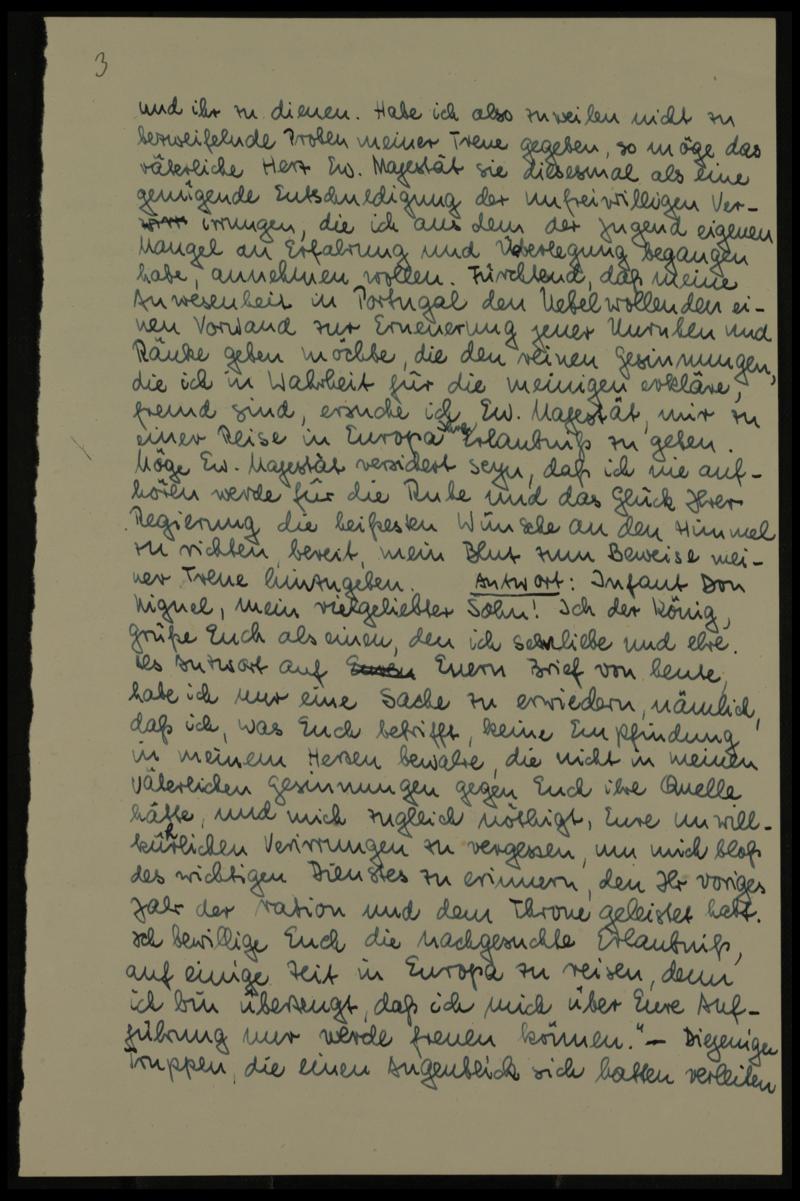 3
und ihr zu dienen. Habe ich also zuweilen nicht zu
bezweifelnde Proben meiner Treue gegeben, so möge das
väterliche Herz Ew. Majestät sie diesesmal als eine
genügende Entschuldigung der unfreiwilligen Ver-
irrungen, die ich aus dem der Jugend eigenen
Mangel an Erfahrung und Überlegung begangen
habe, annehmen wollen. Fürchtend, daß meine
Anwesenheit in Portugal den Uebelwollenden ei-
nen Vorwand zur Erneuerung jener Unruhen und
Ränke geben möchte, die den reinen Gesinnungen,
die ich in Wahrheit für die meinigen erkläre,
fremd sind, ersuche ich Ew. Majestät, mir zu
einer Reise in Europa Ihre Erlaubniß zu geben.
Möge Ew. Majestät versichert seyn, daß ich nie auf-
hören werde für die Ruhe und das Glück Ihrer
Regierung die heißesten Wünsche an den Himmel
zu richten, bereit, mein Blut zum Beweise mei-
ner Treue hinzugeben. Antwort: Infant Don
Miguel, mein vielgeliebter Sohn! Ich der König,
grüße Euch als einen, den ich sehr liebe und ehre.
Als Antwort auf Euern Brief von heute,
habe ich nur eine Sache zu erwiedern, nämlich,
daß ich, was Euch betrifft, keine Empfindung
in meinem Herzen bewahre, die nicht in meinen
väterlichen Gesinnungen gegen Euch ihre Quelle
hätte, und mich zugleich nöthigt, Eure unwill-
kührlichen Verirrungen zu vergessen, um mich bloß
des wichtigen Dienstes zu erinnern, den Ihr voriges
Jahr der Nation und dem Throne geleistet habt.
Ich bewillige Euch die nachgesuchte Erlaubniß,
auf einige Zeit in Europa zu reisen, denn
ich bin überzeugt, daß ich mich über Eure Auf-
führung nur werde freuen können." — Diejenigen
Truppen, die einen Augenblick sich hatten verleiten